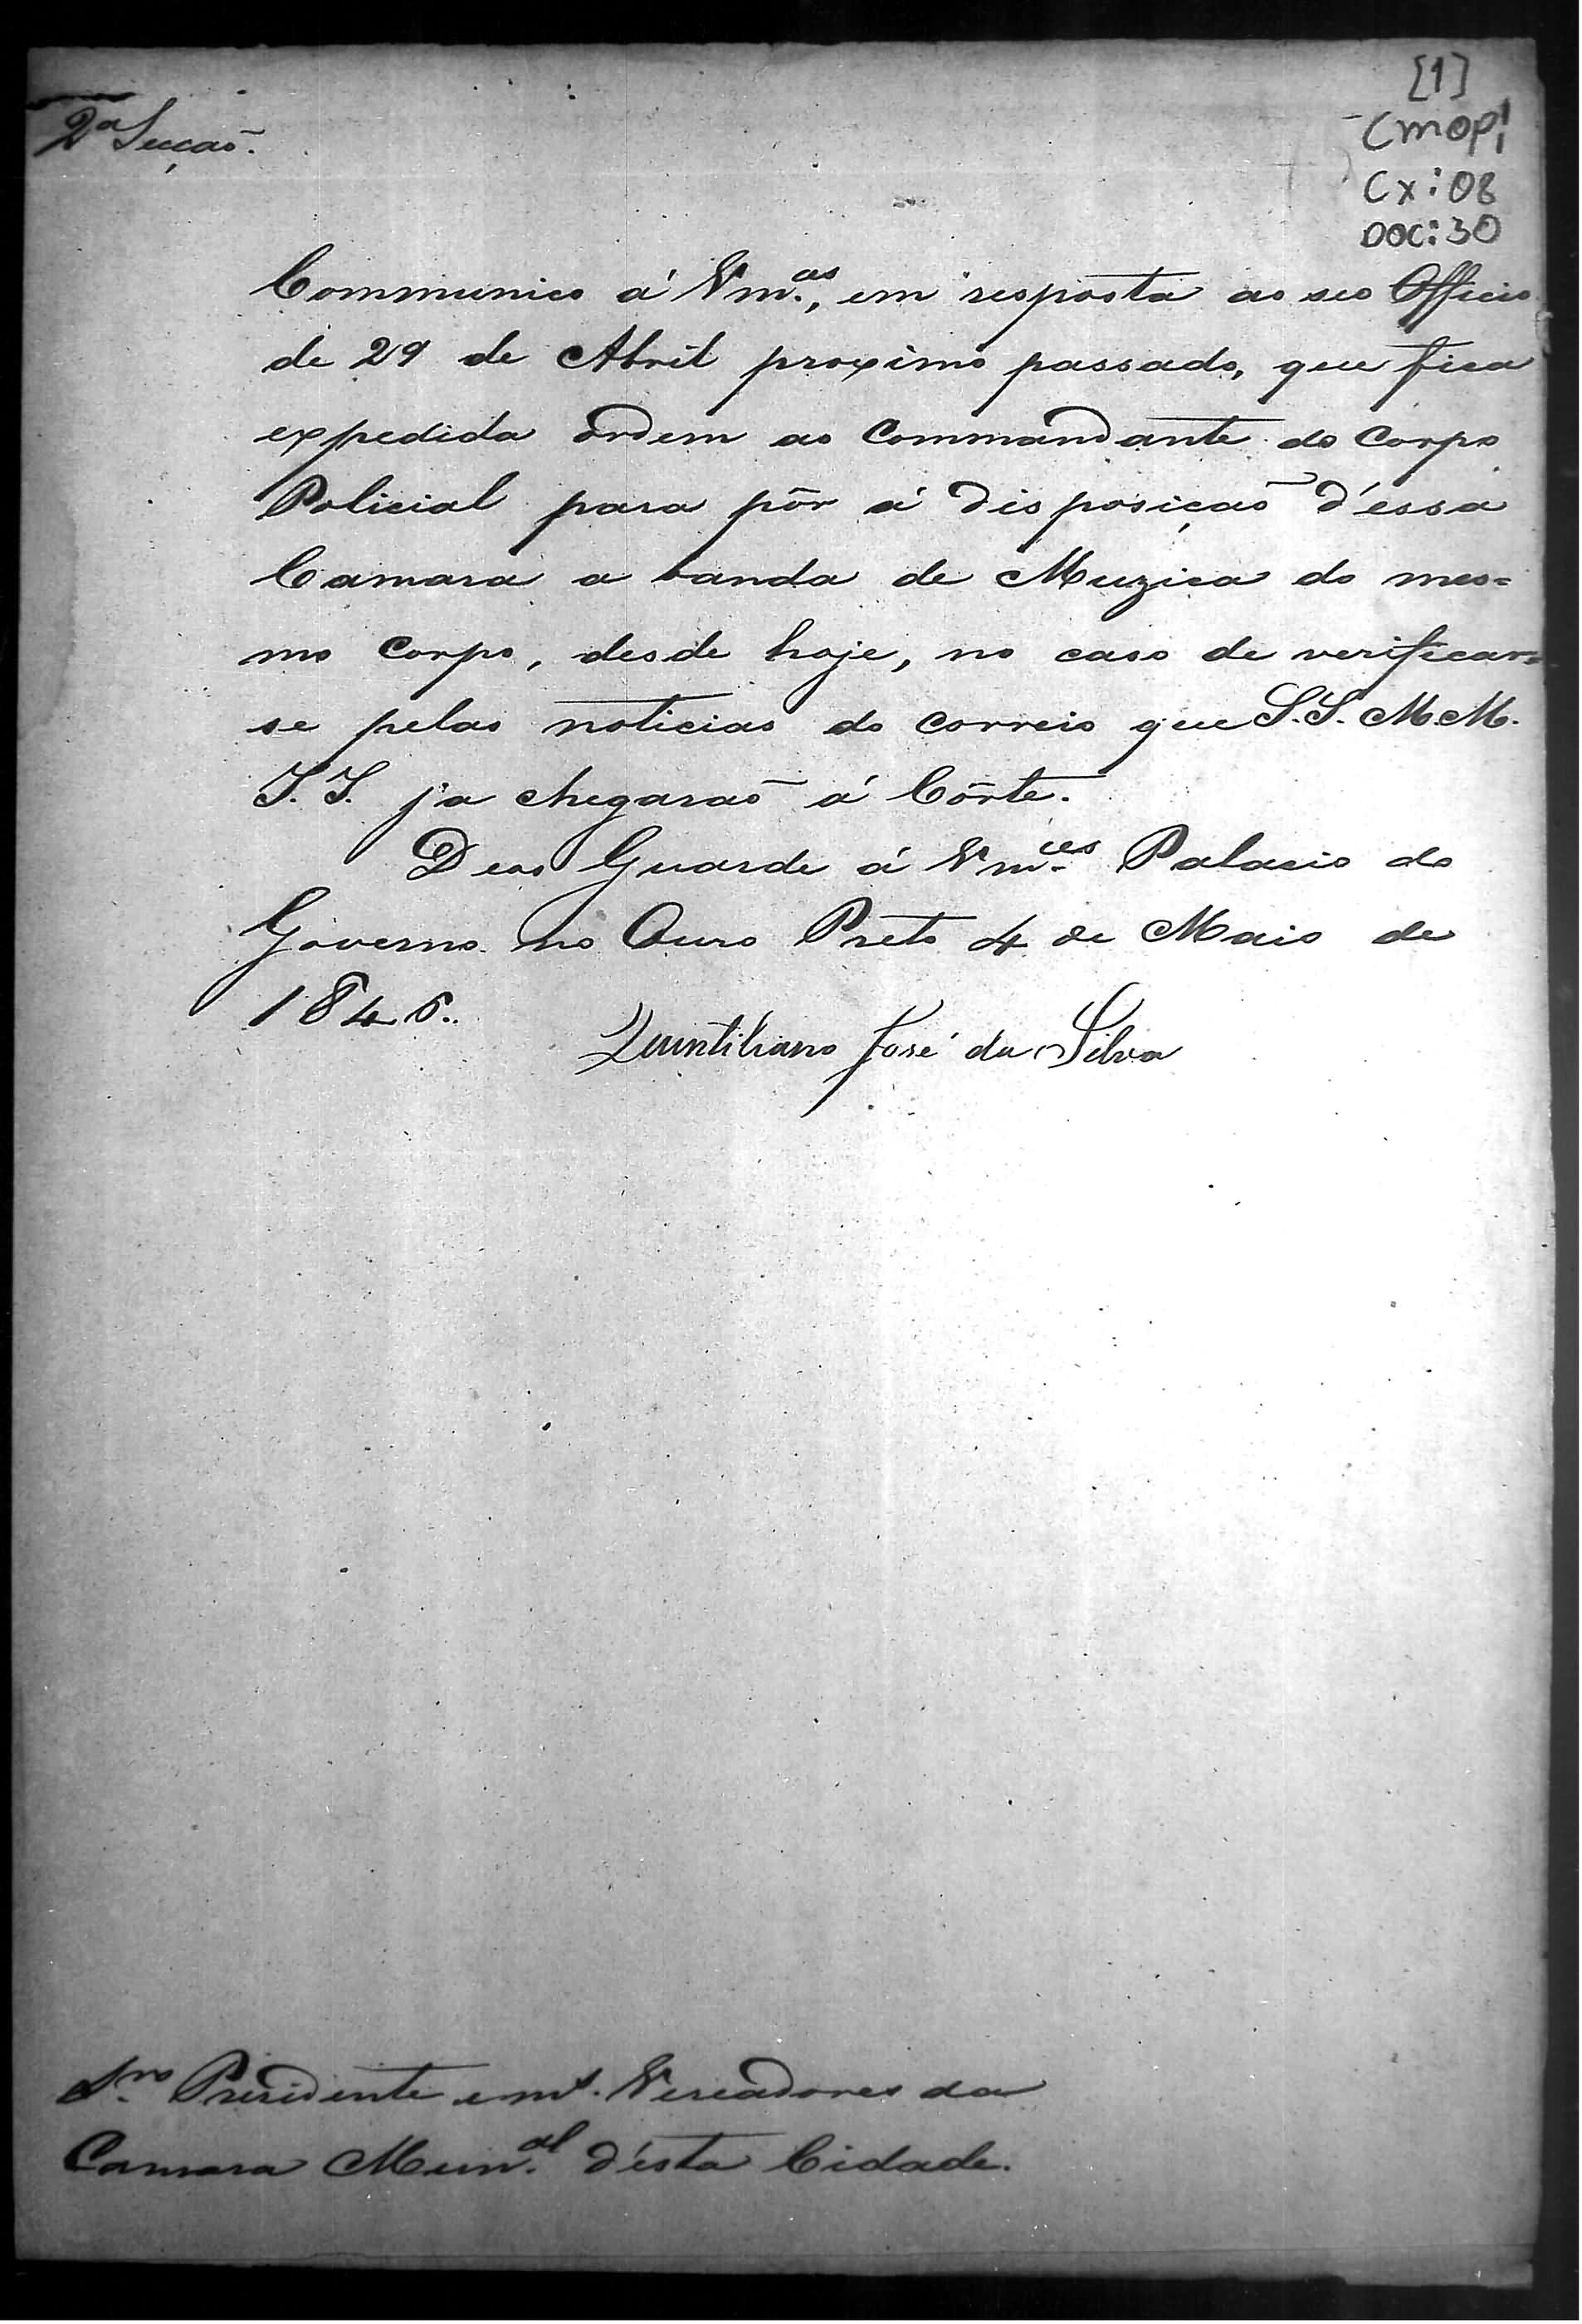 [1]
CMOP
Cx: 08
DOC: 30
2ª Secçaõ.
Communico á Vm.ces, em resposta ao seo Officio
de 29 de Abril proximo passado, que fica
expedida ordem ao Commandante do Corpo
Policial para pôr á disposiçaõ d'essa
Camara a banda de Muzica do mes=
mo Corpo, desde hoje, no caso de verificar=
se pelas noticias do correio que S.S. M.M.
I.I. ja chegaraõ á Côrte.
Deos Guarde á Vm.ces Palacio do
Governo no Ouro Preto 4 de Maio de
1846.
Quintiliano José da Silva
Snr.s Presidente e m.s Vereadores da
Camara Mun.al d'esta Cidade.